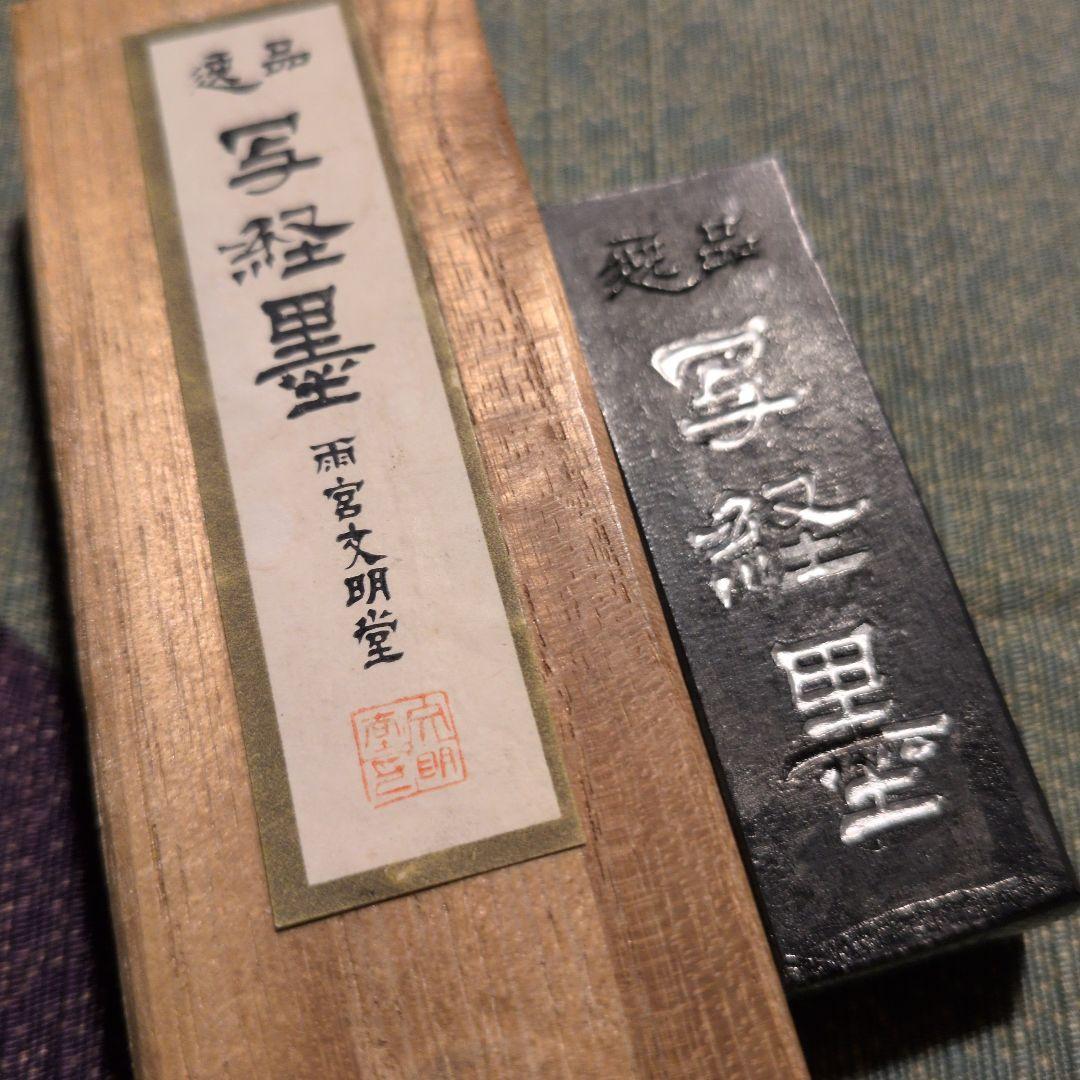 逸品
写経墨
雨宮文明堂
逸品
写経墨